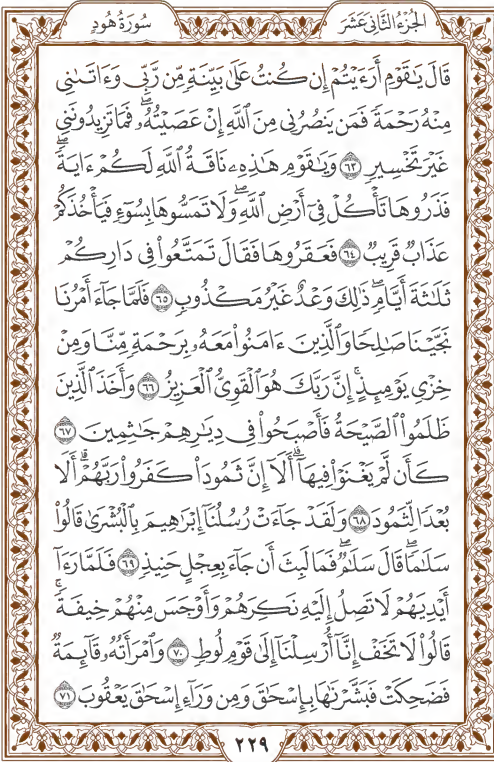 الجُزْءُ الثَّانِيَ عَشَرَ
سُورَةُ هُودٍ
قَالَ يَٰقَوْمِ أَرَءَيْتُمْ إِن كُنتُ عَلَىٰ بَيِّنَةٍ مِّن رَّبِّي وَءَاتَىٰنِي
مِنْهُ رَحْمَةً فَمَن يَنصُرُنِي مِنَ ٱللَّهِ إِنْ عَصَيْتُهُۥۖ فَمَا تَزِيدُونَنِي
غَيْرَ تَخْسِيرٍ ٦٣ وَيَٰقَوْمِ هَٰذِهِۦ نَاقَةُ ٱللَّهِ لَكُمْ ءَايَةًۖ
فَذَرُوهَا تَأْكُلْ فِيٓ أَرْضِ ٱللَّهِۖ وَلَا تَمَسُّوهَا بِسُوٓءٍ فَيَأْخُذَكُمْ
عَذَابٌ قَرِيبٌ ٦٤ فَعَقَرُوهَا فَقَالَ تَمَتَّعُوا۟ فِي دَارِكُمْ
ثَلَٰثَةَ أَيَّامٍۖ ذَٰلِكَ وَعْدٌ غَيْرُ مَكْذُوبٍ ٦٥ فَلَمَّا جَآءَ أَمْرُنَا
نَجَّيْنَا صَٰلِحًا وَٱلَّذِينَ ءَامَنُوا۟ مَعَهُۥ بِرَحْمَةٍ مِّنَّا وَمِنْ
خِزْيِ يَوْمِئِذٍۚ إِنَّ رَبَّكَ هُوَ ٱلْقَوِيُّ ٱلْعَزِيزُ ٦٦ وَأَخَذَ ٱلَّذِينَ
ظَلَمُوا۟ ٱلصَّيْحَةُ فَأَصْبَحُوا۟ فِي دِيَٰرِهِمْ جَٰثِمِينَ ٦٧
كَأَن لَّمْ يَغْنَوْا۟ فِيهَآۗ أَلَآ إِنَّ ثَمُودَا۟ كَفَرُوا۟ رَبَّهُمْۗ أَلَا
بُعْدًا لِّثَمُودَ ٦٨ وَلَقَدْ جَآءَتْ رُسُلُنَآ إِبْرَٰهِيمَ بِٱلْبُشْرَىٰ قَالُوا۟
سَلَٰمًاۖ قَالَ سَلَٰمٌۖ فَمَا لَبِثَ أَن جَآءَ بِعِجْلٍ حَنِيذٍ ٦٩ فَلَمَّا رَءَآ
أَيْدِيَهُمْ لَا تَصِلُ إِلَيْهِ نَكِرَهُمْ وَأَوْجَسَ مِنْهُمْ خِيفَةًۚ
قَالُوا۟ لَا تَخَفْ إِنَّآ أُرْسِلْنَآ إِلَىٰ قَوْمِ لُوطٍ ٧٠ وَٱمْرَأَتُهُۥ قَآئِمَةٌ
فَضَحِكَتْ فَبَشَّرْنَٰهَا بِإِسْحَٰقَ وَمِن وَرَآءِ إِسْحَٰقَ يَعْقُوبَ ٧١
٢٢٩